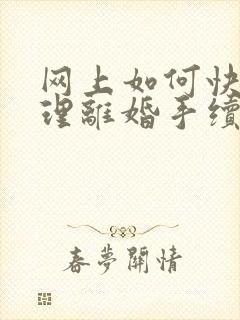 网上如何快
理離婚手續
春夢關情